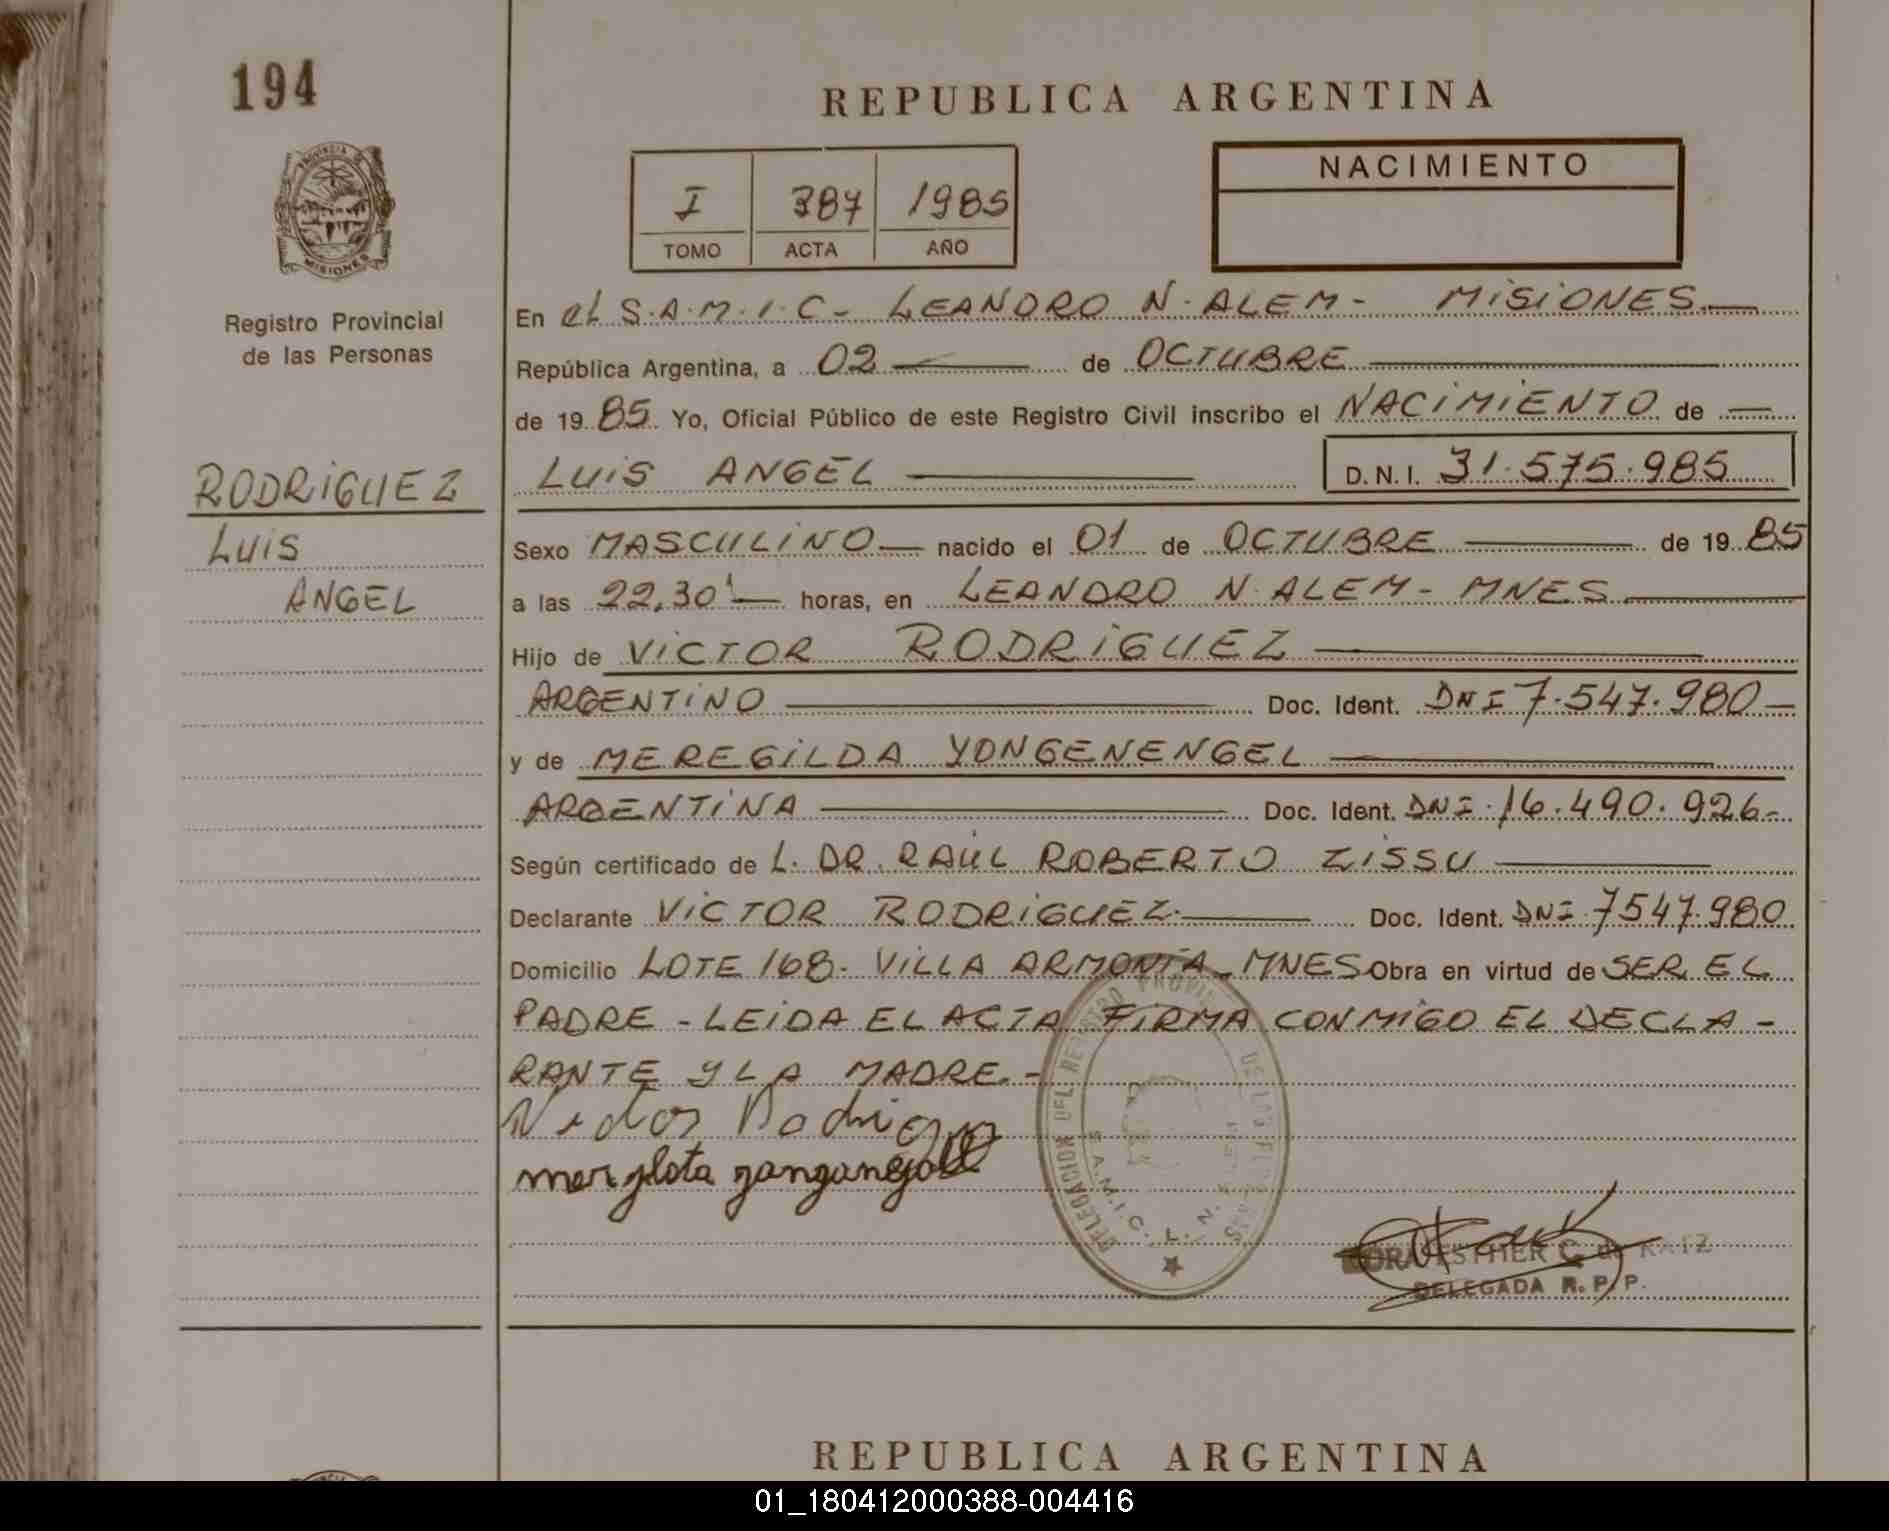 194
REPUBLICA ARGENTINA
PROVINCIA DE
MISIONES
Registro Provincial
de las Personas
I 387 1985
TOMO ACTA AÑO
NACIMIENTO
En el S.A.M.I.C- LEANDRO N. ALEM- MISIONES
República Argentina, a 02 de OCTUBRE
de 19 85 Yo, Oficial Público de este Registro Civil inscribo el NACIMIENTO de
LUIS ANGEL D.N.I. 31.575.985
RODRIGUEZ
LUIS
ANGEL
Sexo MASCULINO nacido el 01 de OCTUBRE de 19 85
a las 22,30' horas, en LEANDRO N. ALEM- MNES
Hijo de VICTOR RODRIGUEZ
ARGENTINO Doc. Ident. DNI 7.547.980
y de MEREGILDA YONGENENGEL
ARGENTINA Doc. Ident. DNI. 16.490.926-
Según certificado de L. DR. RAUL ROBERTO ZISSU
Declarante VICTOR RODRIGUEZ. Doc. Ident. DNI 7547.980
Domicilio LOTE 168- VILLA ARMONIA- MNES Obra en virtud de SER EL
PADRE - LEIDA EL ACTA FIRMA CONMIGO EL DECLA-
RANTE Y LA MADRE.-
DELEGACION DEL REGISTRO PROVIN DE LAS PERSONAS
S.A.M.I.C. L. N.
ESTHER C. de KATZ
DELEGADA R. P. P.
REPUBLICA ARGENTINA
01_180412000388-004416